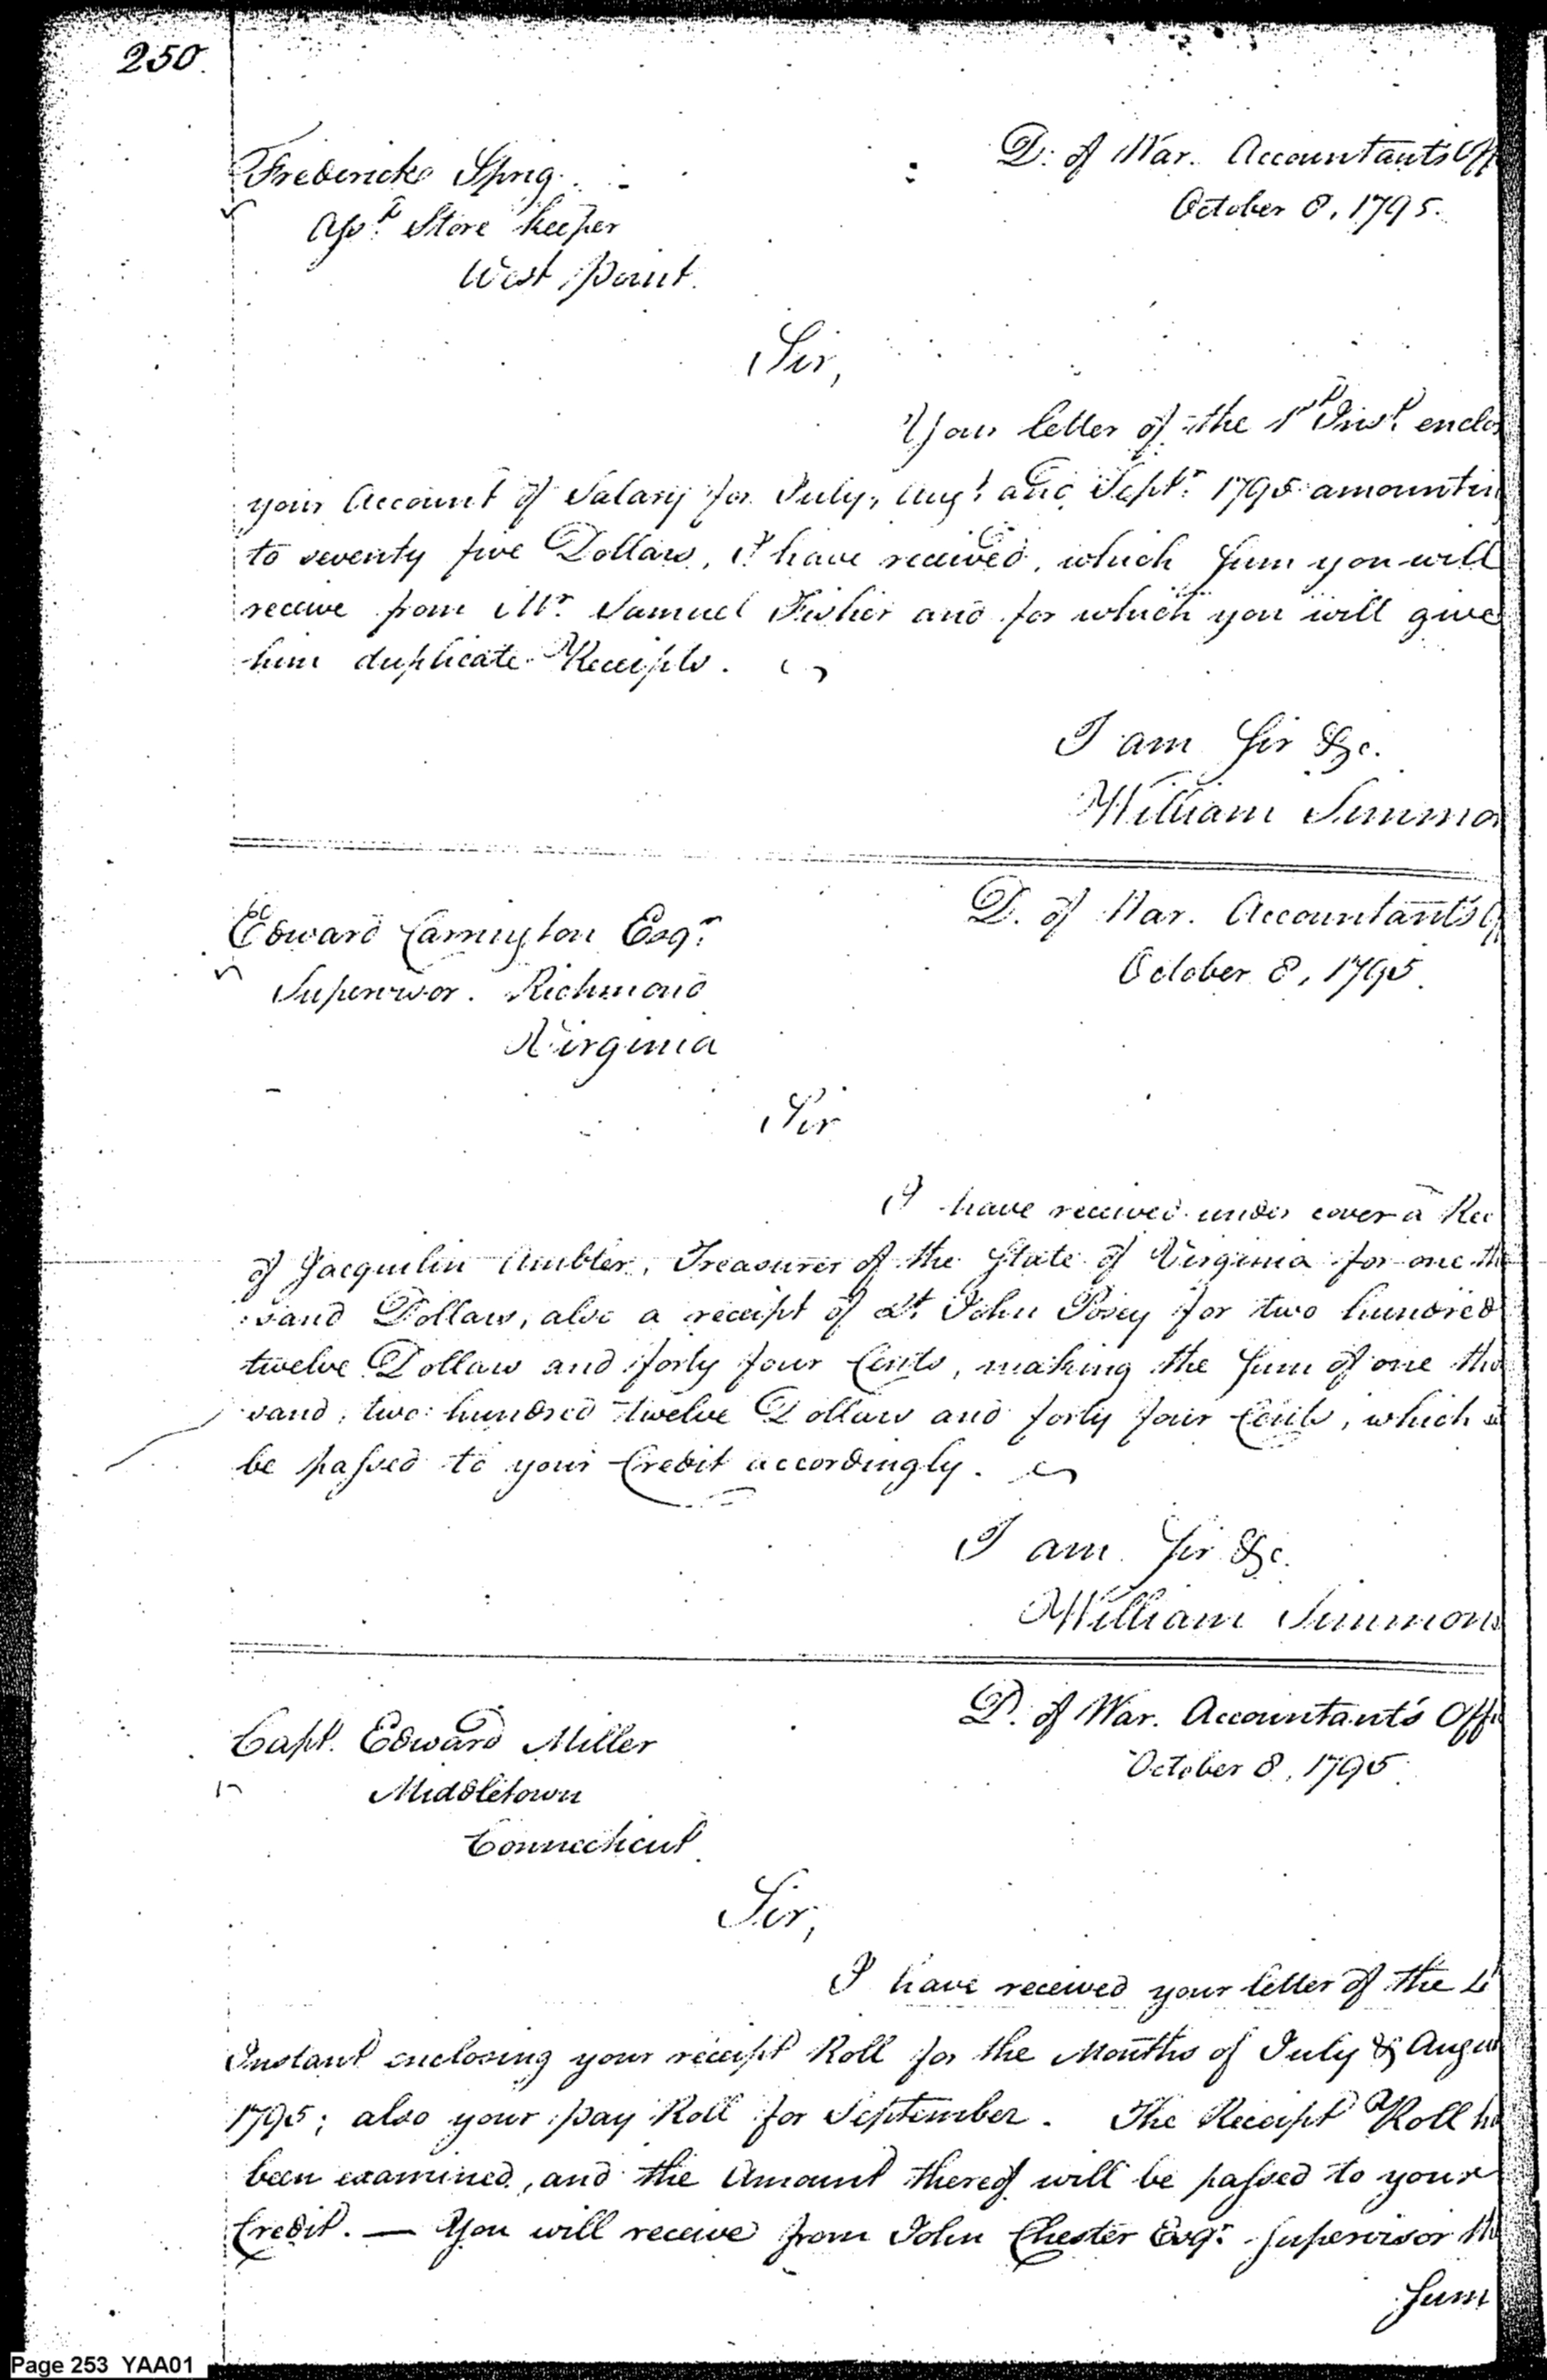 250.
D. of War. Accountants Off
October 8, 1795.
Frederick Sprig
Asst. Store Keeper
West Point.
Sir,
Your letter of the 1st Inst. enclos
your Account of Salary for July, Augt. and Septr. 1795 amountin
to seventy five Dollars, I have received, which sum you will
receive from Mr. Samuel Fisher and for which you will give
him duplicate Receipts.
I am Sir &c.
William Simmo
D. of War. Accountants O
October 8, 1795.
Edward Carrington Esqr.
Supervisor. Richmond
Virginia
Sir
I have received under cover a Rec
of Jacquilin Ambler, Treasurer of the State of Virginia for one th
sand Dollars, also a receipt of Lt. John Posey for two hundred
twelve Dollars and forty four Cents, making the Sum of one tho
sand, two hundred twelve Dollars and forty four Cents, which
be passed to your Credit accordingly.
I am Sir &c.
William Simmons
D. of War. Accountant's Offi
October 8, 1795.
Capt. Edward Miller
Middletown
Connecticut.
Sir,
I have received your letter of the
Instant enclosing your receipt Roll for the Months of July & Augu
1795; also your pay Roll for September. The Receipt Roll ha
been examined, and the Amount thereof will be passed to your
Credit. — You will receive from John Chester Esqr. Supervisor the
Sum
Page 253 YAA01